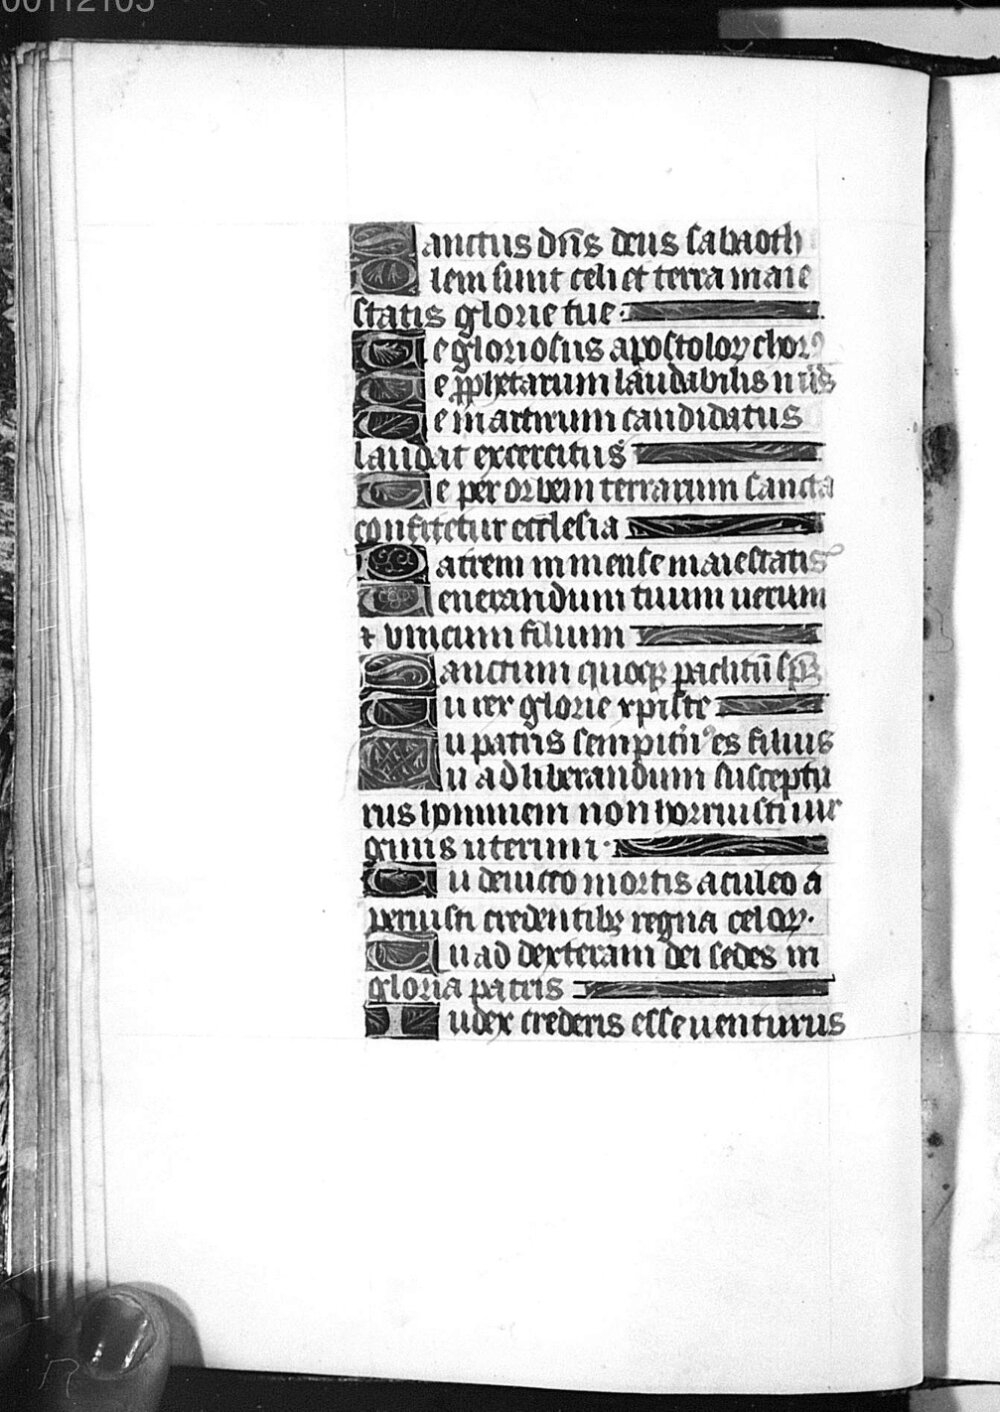 00112105
Sanctus dn̄s deus sabaoth
Pleni sunt celi et terra maie
statis glorie tue
Te gloriosus apostoloꝝ chorꝯ
Te ꝓphetarum laudabilis nūs
Te martirum candidatus
laudat excercitus
Te per orbem terrarum sancta
confitetur ecclesia
Patrem inmense maiestatis
Uenerandum tuum uerum
⁊ vnicum filium
Sanctum quoqꝫ paclitū sp̄m
Tu rex glorie xpiste
Tu patris sempitnꝰ es filius
Tu ad liberandum susceptu
rus hominem non horruisti uir
ginis uterum
Tu deuicto mortis aculeo a
peruisti credentibꝫ regna celoꝝ
Tu ad dexteram dei sedes in
gloria patris
Iudex crederis esse uenturus